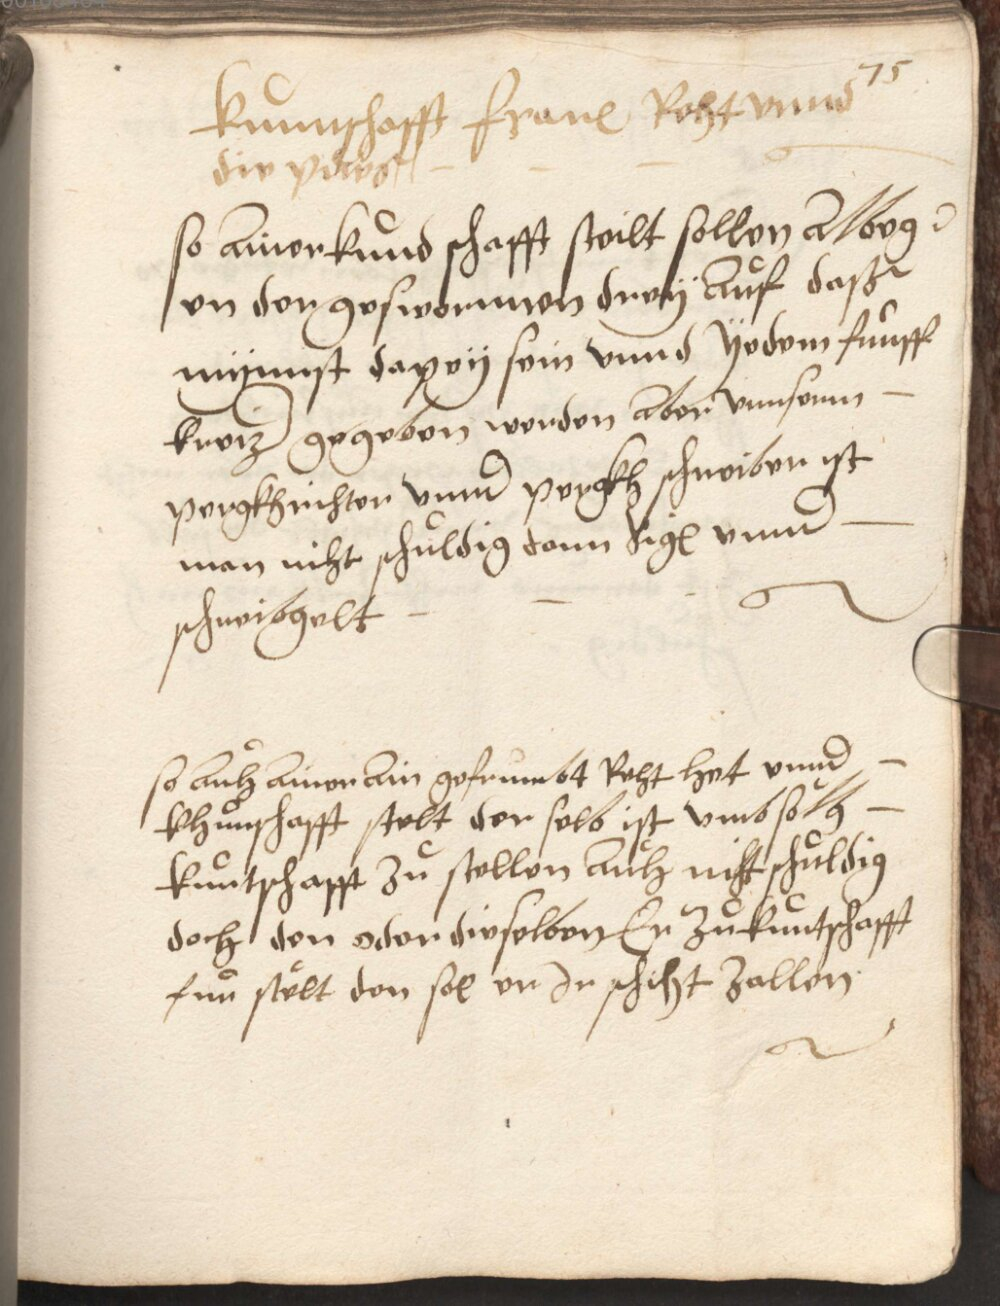 75
kunntschafft frauel Recht vnnd
die
so ainer kundschafft stelt sollen albeg
en der geswornnen drey auf das
mynnist dapey sein vnnd yedem funff
kreiz gegeben werden aber vnnserm
pergkhrichter vnnd pergkhschreiber ist
man nicht schuldig dann sigl vnnd
schreibgelt
so auch ainer ain gefrumbt Recht het vnnd
khuntschafft stelt der selb ist vmb solch
kuntschafft zu stellen auch nicht schuldig
doch den oder dieselben Er zu kuntschafft
fur stelt den sol er Ir schicht zallen